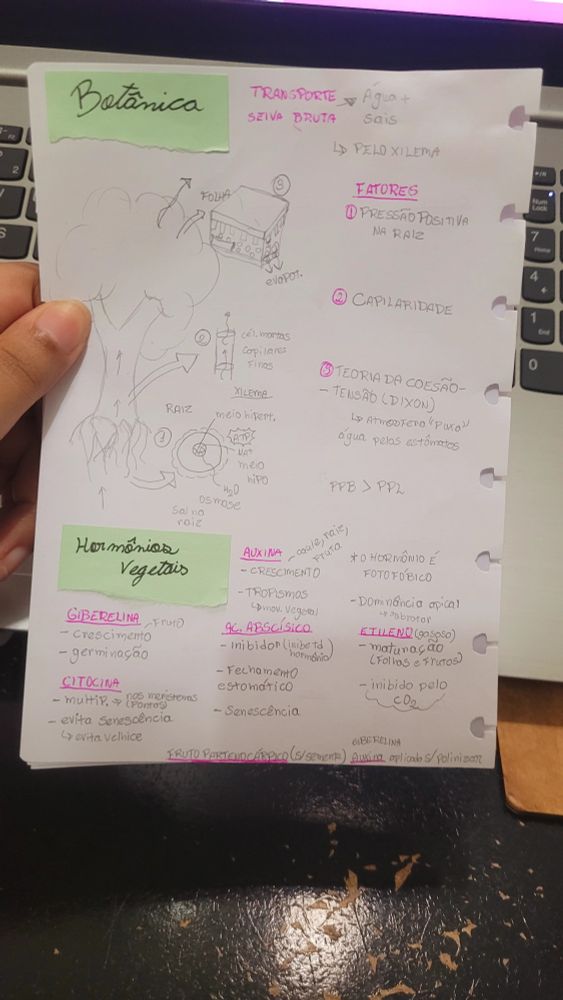 Botânica
TRANSPORTE → Água +
SEIVA BRUTA sais
↳ PELO XILEMA
FATORES
① PRESSÃO POSITIVA
NA RAIZ
② CAPILARIDADE
③ TEORIA DA COESÃO-
- TENSÃO (DIXON)
↳ Atmosfera "puxa"
água pelos estômatos
PPB > PPL
FOLHA
③
evapor.
②
cél. mortas
capilares
finos
XILEMA
RAIZ
①
meio hipert.
ATP
Na+
meio
hipo
H₂O
osmose
sal na
raiz
Hormônios
Vegetais
AUXINA caule, raiz,
fruto
- CRESCIMENTO
- TROPISMOS
↳ mov. vegetal
* O HORMÔNIO É
FOTOFÓBICO
- Dominância apical
GIBERELINA Fruto
- crescimento
- germinação
CITOCINA
- multip. → nos meristemas
(Pontas)
- evita senescência
↳ evita velhice
AC. ABSCÍSICO
- inibidor (inibe td
hormônio)
- Fechamento
estomático
- Senescência
ETILENO (gasoso)
- maturação
(Folhas e Frutos)
- inibido pelo
CO₂
FRUTO PARTENOCÁRPICO (s/semente)
GIBERELINA
Auxina aplicado s/ polinizar